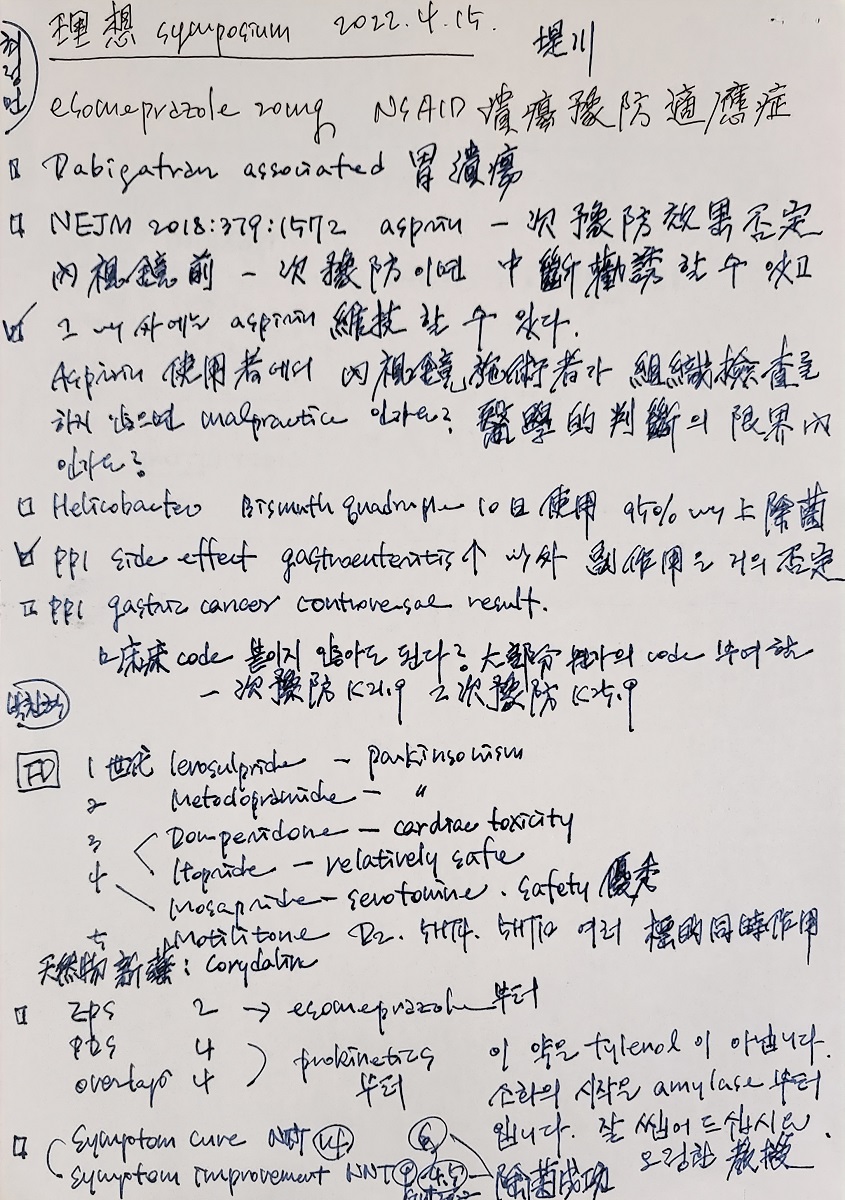 理想 symposium 2022.4.15.
堤川
esomeprazole 20mg NSAID 潰瘍豫防適應症
Dabigatran associated 胃潰瘍
NEJM 2018:379:1572 aspirin 一次豫防效果否定
內視鏡前 一次豫防이면 中斷勸誘 할 수 있고
그 以外에는 aspirin 維持 할 수 있다.
Aspirin 使用者에서 內視鏡施術者가 組織檢査를
하지 않으면 malpractice 인가요? 醫學的判斷의 限界內
인가요?
Helicobacter Bismuth quadruple 10日 使用 95% 以上 除菌
PPI side effect gastroenteritis ↑ 以外 副作用은 거의 否定
PPI gastric cancer controversal result.
code 붙이지 않아도 된다? 大部分 code 부여함
一次豫防 K21.9 二次豫防 K25.9
FD 1世代 levosulpride - parkinsonism
2 Metoclopramide - "
3 Domperidone - cardiac toxicity
4 Itopride - relatively safe
Mosapride - serotonine. safety 優秀
Motilitone D2. 5HT4. 5HT1B 여러 標的同時作用
天然物新藥: corydalin
EPS 2 → esomeprazole 부터
PDS 4
overlap 4
prokinetics
부터
이 약은 tylenol 이 아닙니다.
소화의 시작은 amylase 부터
입니다. 잘 씹어 드십시요.
敎授
Symptom cure NNT 14 6
symptom improvement NNT
除菌成功